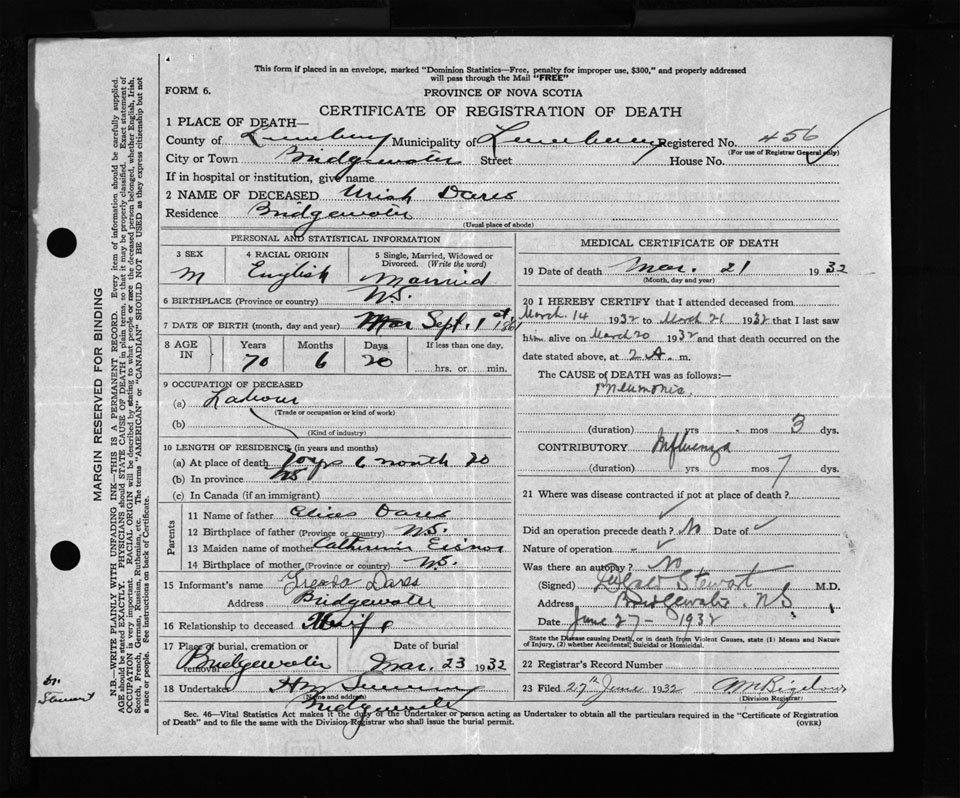 This form if placed in an envelope, marked "Dominion Statistics—Free, penalty for improper use, $300," and properly addressed
will pass through the Mail "FREE"
FORM 6.
PROVINCE OF NOVA SCOTIA
CERTIFICATE OF REGISTRATION OF DEATH
1 PLACE OF DEATH—
County of Lunenburg Municipality of Lunenburg Registered No. 456
(For use of Registrar General only)
City or Town Bridgewater Street House No.
If in hospital or institution, give name
2 NAME OF DECEASED Uriah Dares
Residence Bridgewater
(Usual place of abode)
PERSONAL AND STATISTICAL INFORMATION
3 SEX 4 RACIAL ORIGIN 5 Single, Married, Widowed or Divorced. (Write the word)
M English Married
6 BIRTHPLACE (Province or country) N.S.
7 DATE OF BIRTH (month, day and year) Mar Sept. 1st 1861
8 AGE IN Years Months Days If less than one day,
70 6 20 hrs. or min.
9 OCCUPATION OF DECEASED
(a) Labour
(Trade or occupation or kind of work)
(b)
(Kind of industry)
10 LENGTH OF RESIDENCE (in years and months)
(a) At place of death 70 yrs 6 month 20
(b) In province NS
(c) In Canada (if an immigrant)
Parents
11 Name of father Dares
12 Birthplace of father (Province or country) N.S.
13 Maiden name of mother Catherine Eisnor
14 Birthplace of mother (Province or country) N.S.
15 Informant's name Dares
Address Bridgewater
16 Relationship to deceased
17 Place of burial, cremation or removal Date of burial
Bridgewater Mar. 23 1932
18 Undertaker
(Name and address)
Bridgewater
MEDICAL CERTIFICATE OF DEATH
19 Date of death Mar. 21 1932
(Month, day and year)
20 I HEREBY CERTIFY that I attended deceased from
March 14 1932 to March 21 1932 that I last saw
him alive on March 20 1932 and that death occurred on the
date stated above, at 2 A. m.
The CAUSE of DEATH was as follows:—
Pneumonia.
(duration) yrs mos 3 dys.
CONTRIBUTORY Influenza
(duration) yrs mos 7 dys.
21 Where was disease contracted if not at place of death?
Did an operation precede death? No Date of
Nature of operation
Was there an autopsy? No
(Signed) Stewart M.D.
Address Bridgewater. N.S.
Date June 27 - 1932
State the Disease causing Death, or in death from Violent Causes, state (1) Means and Nature
of Injury, (2) whether Accidental, Suicidal or Homicidal.
22 Registrar's Record Number
23 Filed 27th June 1932
(Division Registrar)
Sec. 46—Vital Statistics Act makes it the duty of the Undertaker or person acting as Undertaker to obtain all the particulars required in the "Certificate of Registration
of Death" and to file the same with the Division Registrar who shall issue the burial permit.
(OVER)
MARGIN RESERVED FOR BINDING
N.B.—WRITE PLAINLY WITH UNFADING INK—THIS IS A PERMANENT RECORD. Every item of information should be carefully supplied.
AGE should be stated EXACTLY. PHYSICIANS should STATE CAUSE OF DEATH in plain terms, so that it may be properly classified. Exact statement of
OCCUPATION is very important. RACIAL ORIGIN will be described by stating to what people or race the deceased person belonged, whether English, Irish,
Scotch, French, German, Russian, Ruthenian, etc. The terms "AMERICAN" or "CANADIAN" SHOULD NOT BE USED as they express citizenship but not
a race or people. See instructions on back of Certificate.
Dr.
Stewart